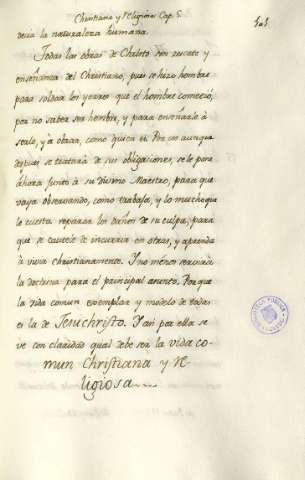 Christiana y Religiosa Cap. 5.
deria la naturaleza humana.
Todas las obras de Christo son rescate y
enseñanza del Christiano, pues se hizo hombre
para soldar los yerros que el hombre cometió,
por no saber ser hombre, y para enseñarle à
serlo, y à obrar, como quien es. Por eso aunque
despues se tratarà de sus obligaciones, se le pone
àhora junto à su Divino Maestro, pàra que
vaya observando, como trabaja, y lo mucho que
le cuesta reparar los daños de su culpa; para
que se cautele de incurrir en otras, y aprenda
à vivir christianamente. Y no menos servirà
la doctrina para el principal asunto. Porque
la vida comun exemplar y modelo de todas
es la de Jesuchristo. Y asi por ella se
ve con claridad qual debe ser la vida co-
mun Christiana y Re-
ligiosa